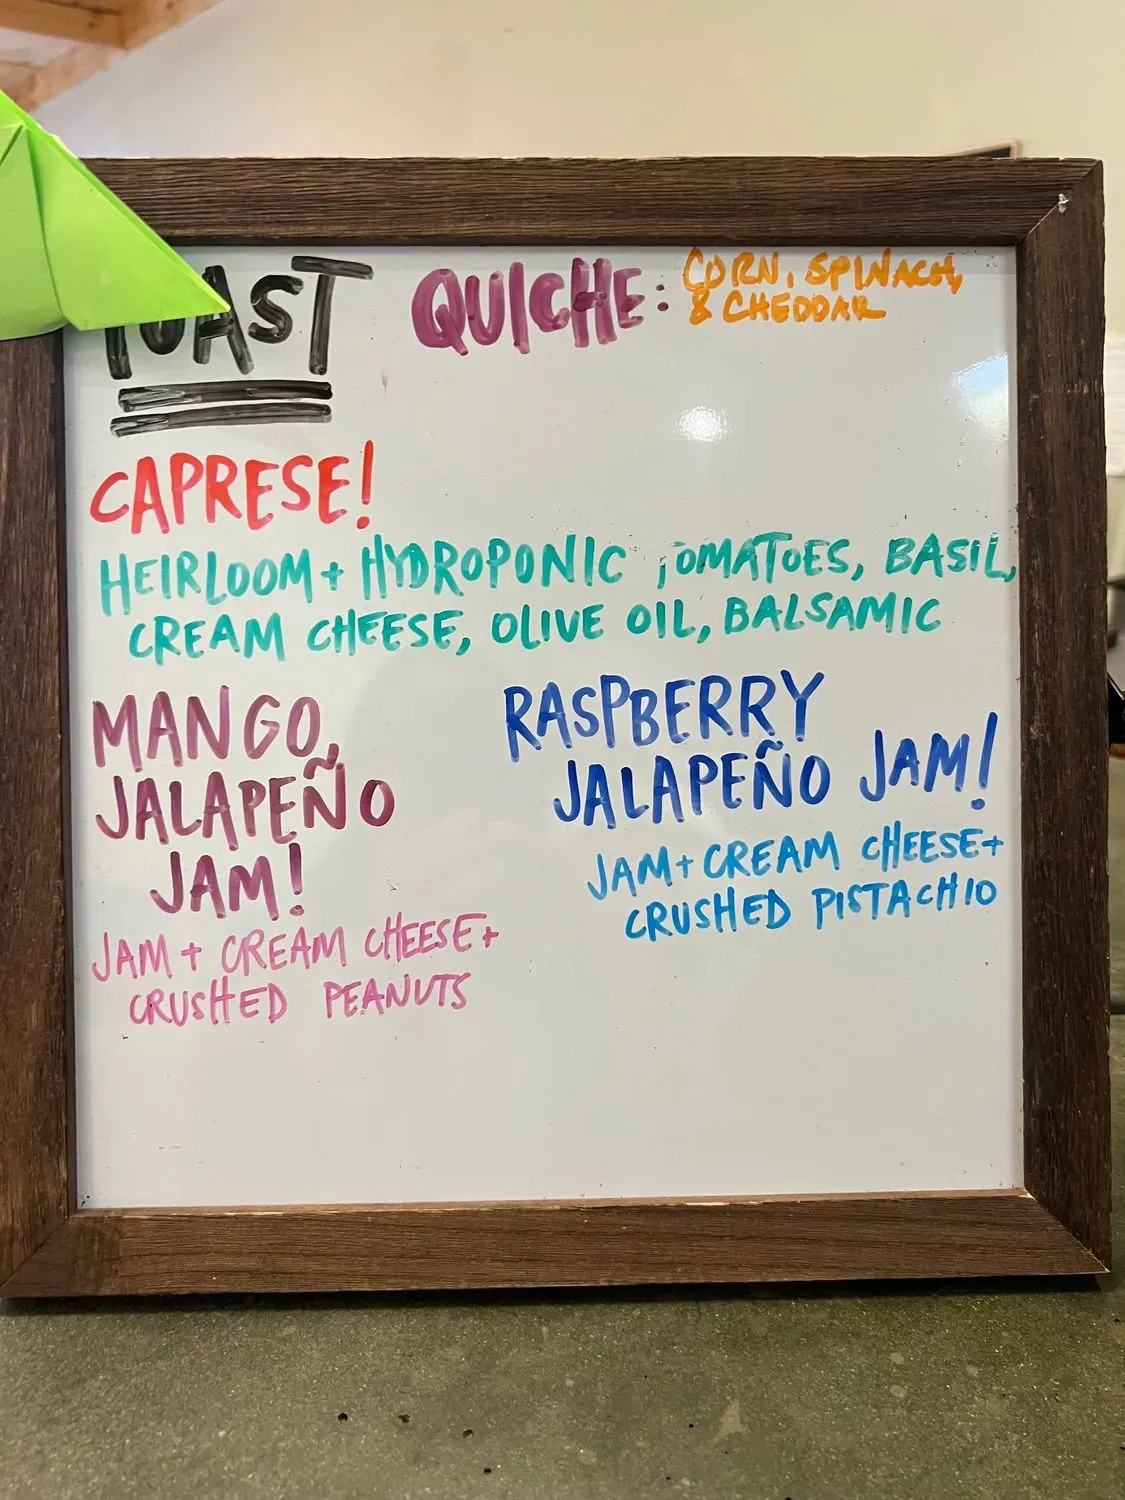 TOAST
QUICHE: CORN, SPINACH,
& CHEDDAR
CAPRESE!
HEIRLOOM + HYDROPONIC TOMATOES, BASIL,
CREAM CHEESE, OLIVE OIL, BALSAMIC
MANGO,
JALAPEÑO
JAM!
JAM + CREAM CHEESE +
CRUSHED PEANUTS
RASPBERRY
JALAPEÑO JAM!
JAM + CREAM CHEESE +
CRUSHED PISTACHIO